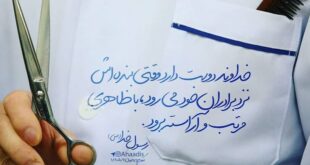 خداوند دوست دارد وقتی بنده اش
نزد برادران خود می رود، با ظاهری
مرتب و آراسته برود.
رسول خدا (ص)